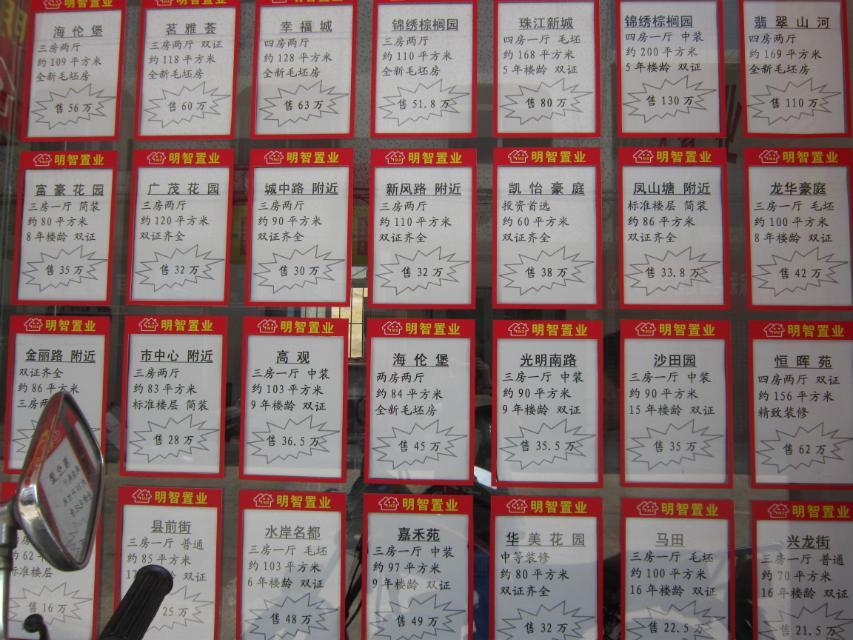 海伦堡
三房两厅
约109平方米
全新毛坯房
售56万
茗雅荟
三房两厅 双证
约118平方米
全新毛坯房
售60万
幸福城
四房两厅
约128平方米
全新毛坯房
售63万
锦绣棕榈园
三房两厅
约110平方米
全新毛坯房
售51.8万
珠江新城
四房一厅 毛坯
约168平方米
5年楼龄 双证
售80万
锦绣棕榈园
四房一厅 中装
约200平方米
5年楼龄 双证
售130万
翡翠山河
四房两厅
约169平方米
全新毛坯房
售110万
明智置业
富豪花园
三房一厅 简装
约80平方米
8年楼龄 双证
售35万
明智置业
广茂花园
三房两厅
约120平方米
双证齐全
售32万
明智置业
城中路 附近
三房两厅
约90平方米
双证齐全
售30万
明智置业
新风路 附近
三房两厅
约110平方米
双证齐全
售32万
明智置业
凯怡豪庭
投资首选
约60平方米
双证齐全
售38万
明智置业
凤山塘 附近
标准楼层 简装
约86平方米
双证齐全
售33.8万
明智置业
龙华豪庭
三房一厅 毛坯
约100平方米
8年楼龄 双证
售42万
明智置业
金丽路 附近
双证齐全
约86平方米
三房两
明智置业
市中心 附近
三房两厅
约83平方米
标准楼层 简装
售28万
明智置业
高观
三房一厅 中装
约103平方米
9年楼龄 双证
售36.5万
明智置业
海伦堡
两房两厅
约84平方米
全新毛坯房
售45万
明智置业
光明南路
三房一厅 中装
约90平方米
9年楼龄 双证
售35.5万
明智置业
沙田园
三房一厅 中装
约90平方米
15年楼龄 双证
售35万
明智置业
恒晖苑
四房两厅 双证
约156平方米
精致装修
售62万
约62平
标准楼层
售16万
明智置业
县前街
三房一厅 普通
约85平方米
双证
25万
明智置业
水岸名都
三房一厅 毛坯
约103平方米
6年楼龄 双证
售48万
明智置业
嘉禾苑
三房一厅 中装
约97平方米
9年楼龄 双证
售49万
明智置业
华美花园
中等装修
约80平方米
双证齐全
售32万
明智置业
马田
三房一厅 毛坯
约100平方米
16年楼龄 双证
售22.5万
明智置业
兴龙街
三房一厅 普通
约70平方米
16年楼龄 双证
售21.5万